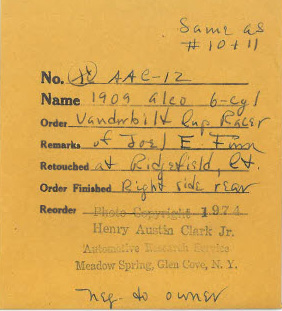 Same as
# 10 + 11
No. 12 AAC-12
Name 1909 Alco 6-cyl
Order Vanderbilt Cup Racer
Remarks of Joel E. Finn
Retouched at Ridgefield, Ct.
Order Finished Right side rear
Reorder Photo Copyright 1974
Henry Austin Clark Jr.
Automotive Research Service
Meadow Spring, Glen Cove, N. Y.
neg. to owner